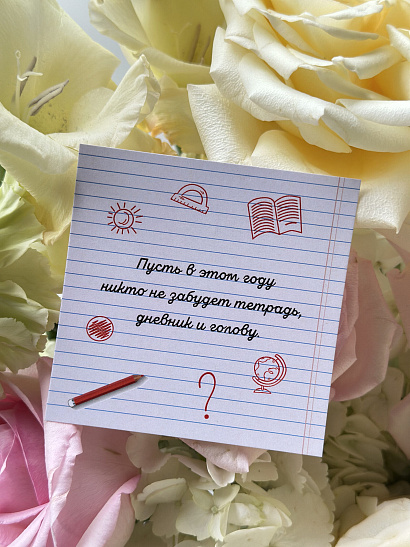 Пусть в этом году
никто не забудет тетрадь,
дневник и голову.
?